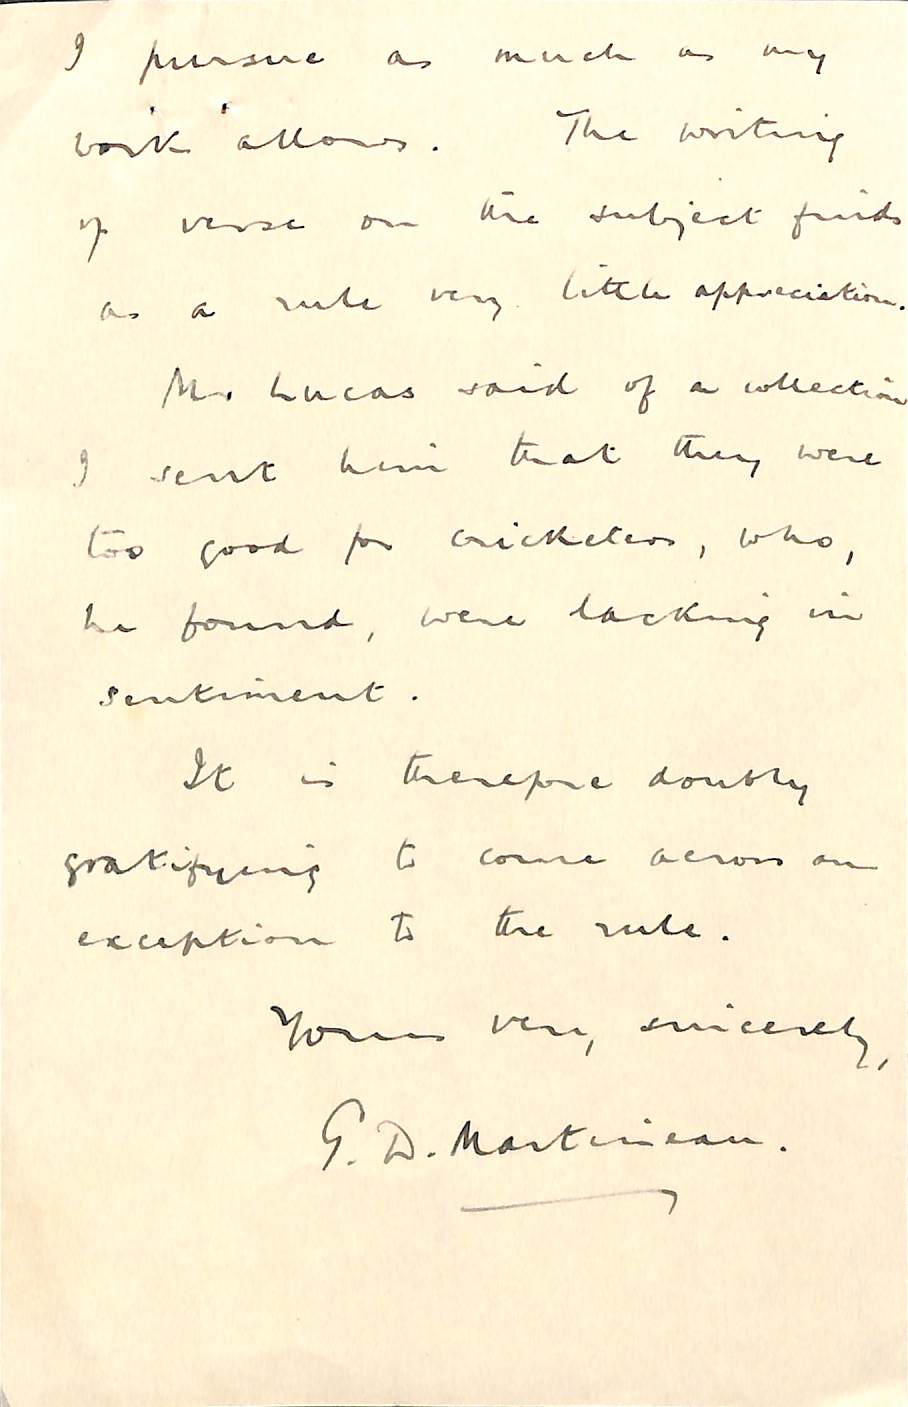 I pursue as much as my
work allows. The writing
of verse on the subject finds
as a rule very little appreciation.
Mr Lucas said of a collection
I sent him that they were
too good for cricketers, who,
he found, were lacking in
sentiment.
It is therefore doubly
gratifying to come across an
exception to the rule.
Yours very sincerely,
G. D. Martineau.